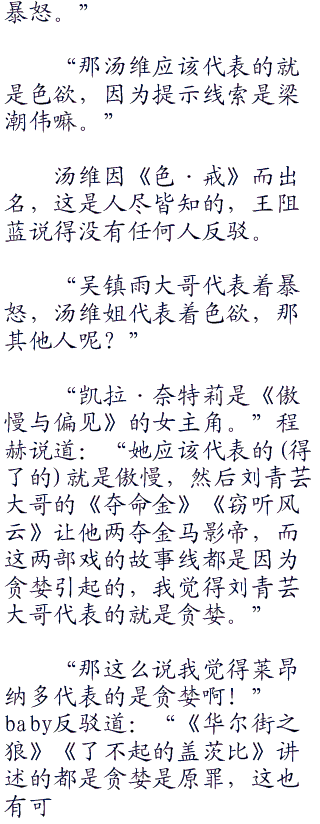 暴怒。”
“那汤维应该代表的就
是色欲，因为提示线索是梁
潮伟嘛。”
汤维因《色·戒》而出
名，这是人尽皆知的，王阻
蓝说得没有任何人反驳。
“吴镇雨大哥代表着暴
怒，汤维姐代表着色欲，那
其他人呢？”
“凯拉·奈特莉是《傲
慢与偏见》的女主角。”程
赫说道：“她应该代表的(得
了的)就是傲慢，然后刘青芸
大哥的《夺命金》《窃听风
云》让他两夺金马影帝，而
这两部戏的故事线都是因为
贪婪引起的，我觉得刘青芸
大哥代表的就是贪婪。”
“那这么说我觉得莱昂
纳多代表的是贪婪啊！”
baby反驳道：“《华尔街之
狼》《了不起的盖茨比》讲
述的都是贪婪是原罪，这也
有可